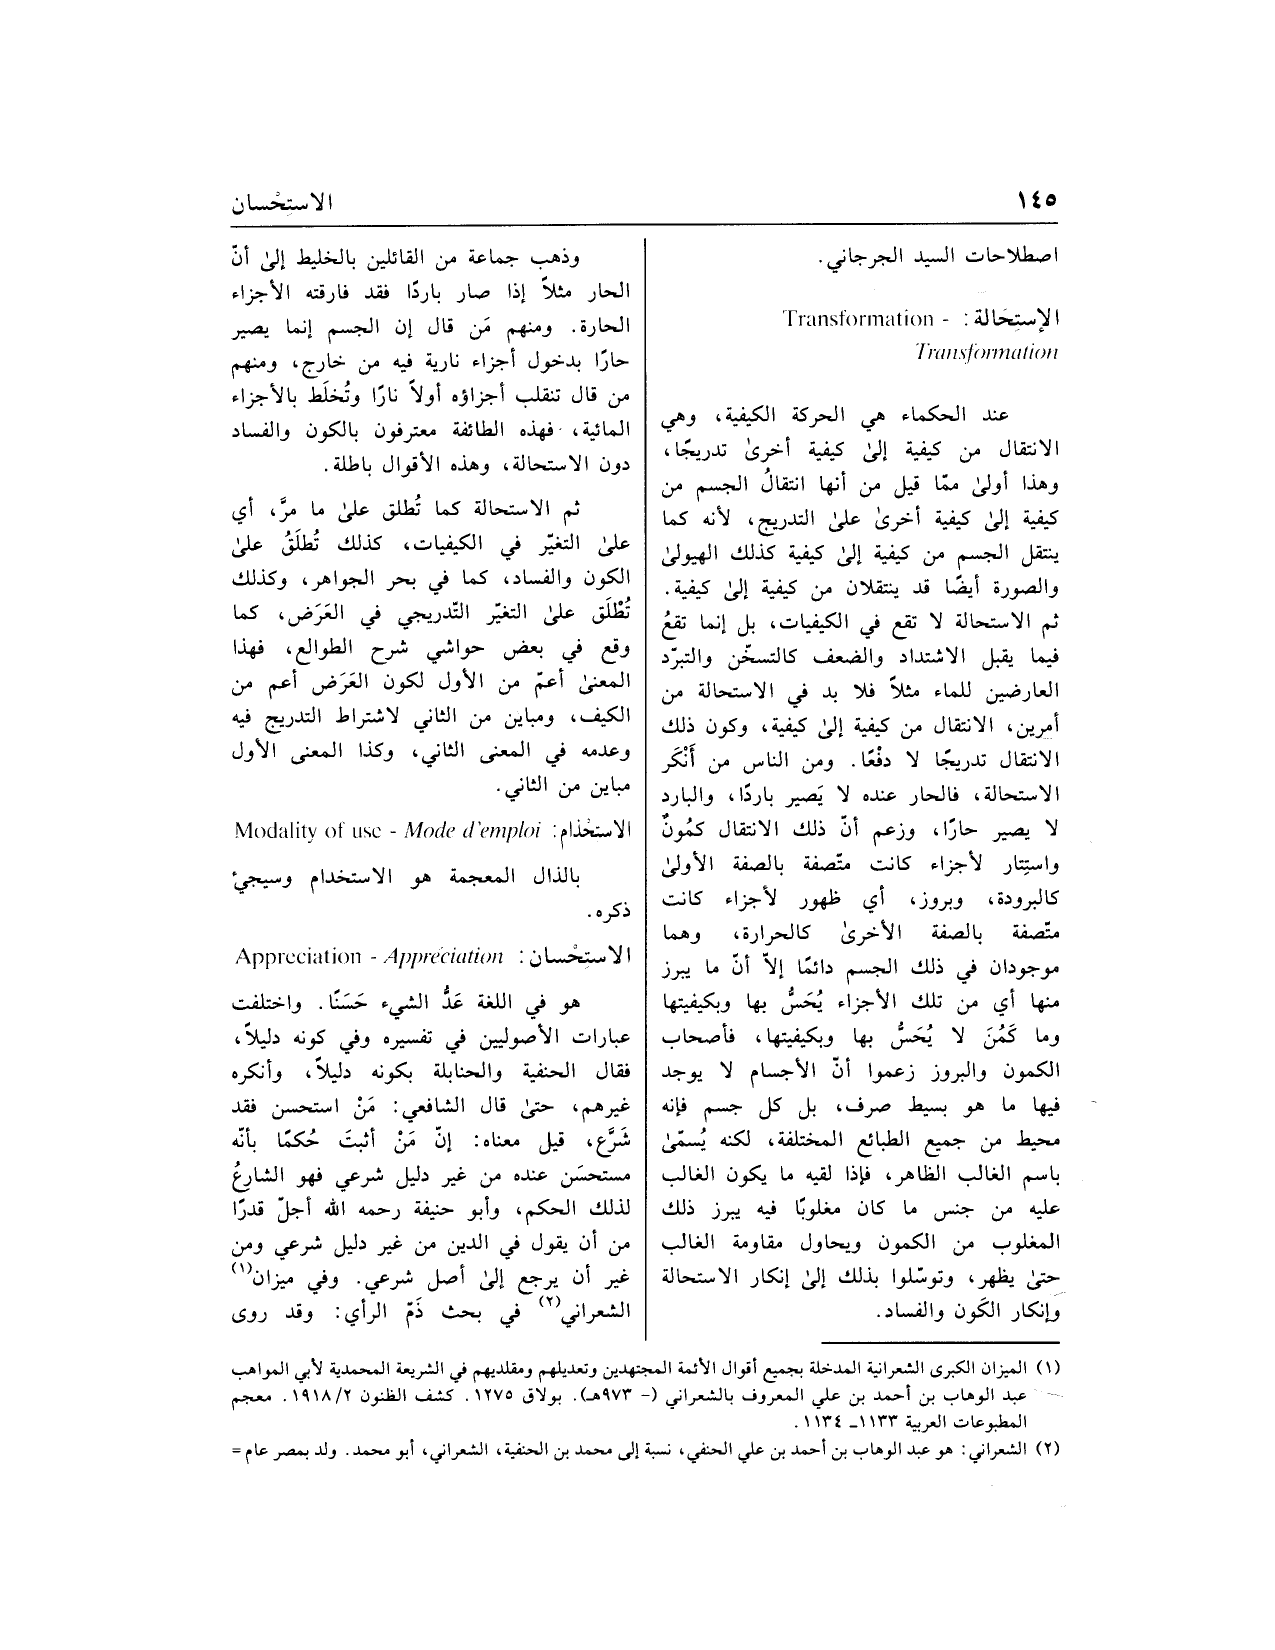 ١٤٥
الاستِحْسان
اصطلاحات السيد الجرجاني.
الإستِحَالة: Transformation -
Transformation
عند الحكماء هي الحركة الكيفية، وهي
الانتقال من كيفية إلىٰ كيفية أخرىٰ تدريجًا،
وهذا أولىٰ ممّا قيل من أنها انتقالُ الجسم من
كيفية إلىٰ كيفية أخرىٰ علىٰ التدريج، لأنه كما
ينتقل الجسم من كيفية إلىٰ كيفية كذلك الهيولىٰ
والصورة أيضًا قد ينتقلان من كيفية إلىٰ كيفية.
ثم الاستحالة لا تقع في الكيفيات، بل إنما تقعُ
فيما يقبل الاشتداد والضعف كالتسخّن والتبرّد
العارضين للماء مثلاً فلا بد في الاستحالة من
أمرين، الانتقال من كيفية إلىٰ كيفية، وكون ذلك
الانتقال تدريجًا لا دفْعًا. ومن الناس من أَنْكَر
الاستحالة، فالحار عنده لا يَصير باردًا، والبارد
لا يصير حارًا، وزعم أنّ ذلك الانتقال كمُونٌ
واستِتار لأجزاء كانت متّصفة بالصفة الأولىٰ
كالبرودة، وبروز، أي ظهور لأجزاء كانت
متّصفة بالصفة الأخرىٰ كالحرارة، وهما
موجودان في ذلك الجسم دائمًا إلاّ أنّ ما يبرز
منها أي من تلك الأجزاء يُحَسُّ بها وبكيفيتها
وما كَمُنَ لا يُحَسُّ بها وبكيفيتها، فأصحاب
الكمون والبروز زعموا أنّ الأجسام لا يوجد
فيها ما هو بسيط صرف، بل كل جسم فإنه
محيط من جميع الطبائع المختلفة، لكنه يُسمّىٰ
باسم الغالب الظاهر، فإذا لقيه ما يكون الغالب
عليه من جنس ما كان مغلوبًا فيه يبرز ذلك
المغلوب من الكمون ويحاول مقاومة الغالب
حتىٰ يظهر، وتوسّلوا بذلك إلىٰ إنكار الاستحالة
وإنكار الكَون والفساد.
وذهب جماعة من القائلين بالخليط إلىٰ أنّ
الحار مثلاً إذا صار باردًا فقد فارقته الأجزاء
الحارة. ومنهم مَن قال إن الجسم إنما يصير
حارًا بدخول أجزاء نارية فيه من خارج، ومنهم
من قال تنقلب أجزاؤه أولاً نارًا وتُخلَط بالأجزاء
المائية، فهذه الطائفة معترفون بالكون والفساد
دون الاستحالة، وهذه الأقوال باطلة.
ثم الاستحالة كما تُطلق علىٰ ما مرَّ، أي
علىٰ التغيّر في الكيفيات، كذلك تُطلَقُ علىٰ
الكون والفساد، كما في بحر الجواهر، وكذلك
تُطْلَق علىٰ التغيّر التّدريجي في العَرَض، كما
وقع في بعض حواشي شرح الطوالع، فهذا
المعنىٰ أعمّ من الأول لكون العَرَض أعم من
الكيف، ومباين من الثاني لاشتراط التدريج فيه
وعدمه في المعنى الثاني، وكذا المعنى الأول
مباين من الثاني.
الاستخْذام: Modality of use - Mode d'emploi
بالذال المعجمة هو الاستخدام وسيجيُ
ذكره.
الاستِحْسان: Appreciation - Appréciation
هو في اللغة عَدُّ الشيء حَسَنًا. واختلفت
عبارات الأصوليين في تفسيره وفي كونه دليلاً،
فقال الحنفية والحنابلة بكونه دليلاً، وأنكره
غيرهم، حتىٰ قال الشافعي: مَنْ استحسن فقد
شَرَّع، قيل معناه: إنّ مَنْ أثبتَ حُكمًا بأنّه
مستحسَن عنده من غير دليل شرعي فهو الشارعُ
لذلك الحكم، وأبو حنيفة رحمه الله أجلّ قدرًا
من أن يقول في الدين من غير دليل شرعي ومن
غير أن يرجع إلىٰ أصل شرعي. وفي ميزان(١)
الشعراني(٢) في بحث ذَمّ الرأي: وقد روى
(١) الميزان الكبرى الشعرانية المدخلة بجميع أقوال الأئمة المجتهدين وتعديلهم ومقلديهم في الشريعة المحمدية لأبي المواهب
عبد الوهاب بن أحمد بن علي المعروف بالشعراني (- ٩٧٣هـ). بولاق ١٢٧٥. كشف الظنون ٢/ ١٩١٨. معجم
المطبوعات العربية ١١٣٣ـ ١١٣٤.
(٢) الشعراني: هو عبد الوهاب بن أحمد بن علي الحنفي، نسبة إلى محمد بن الحنفية، الشعراني، أبو محمد. ولد بمصر عام =